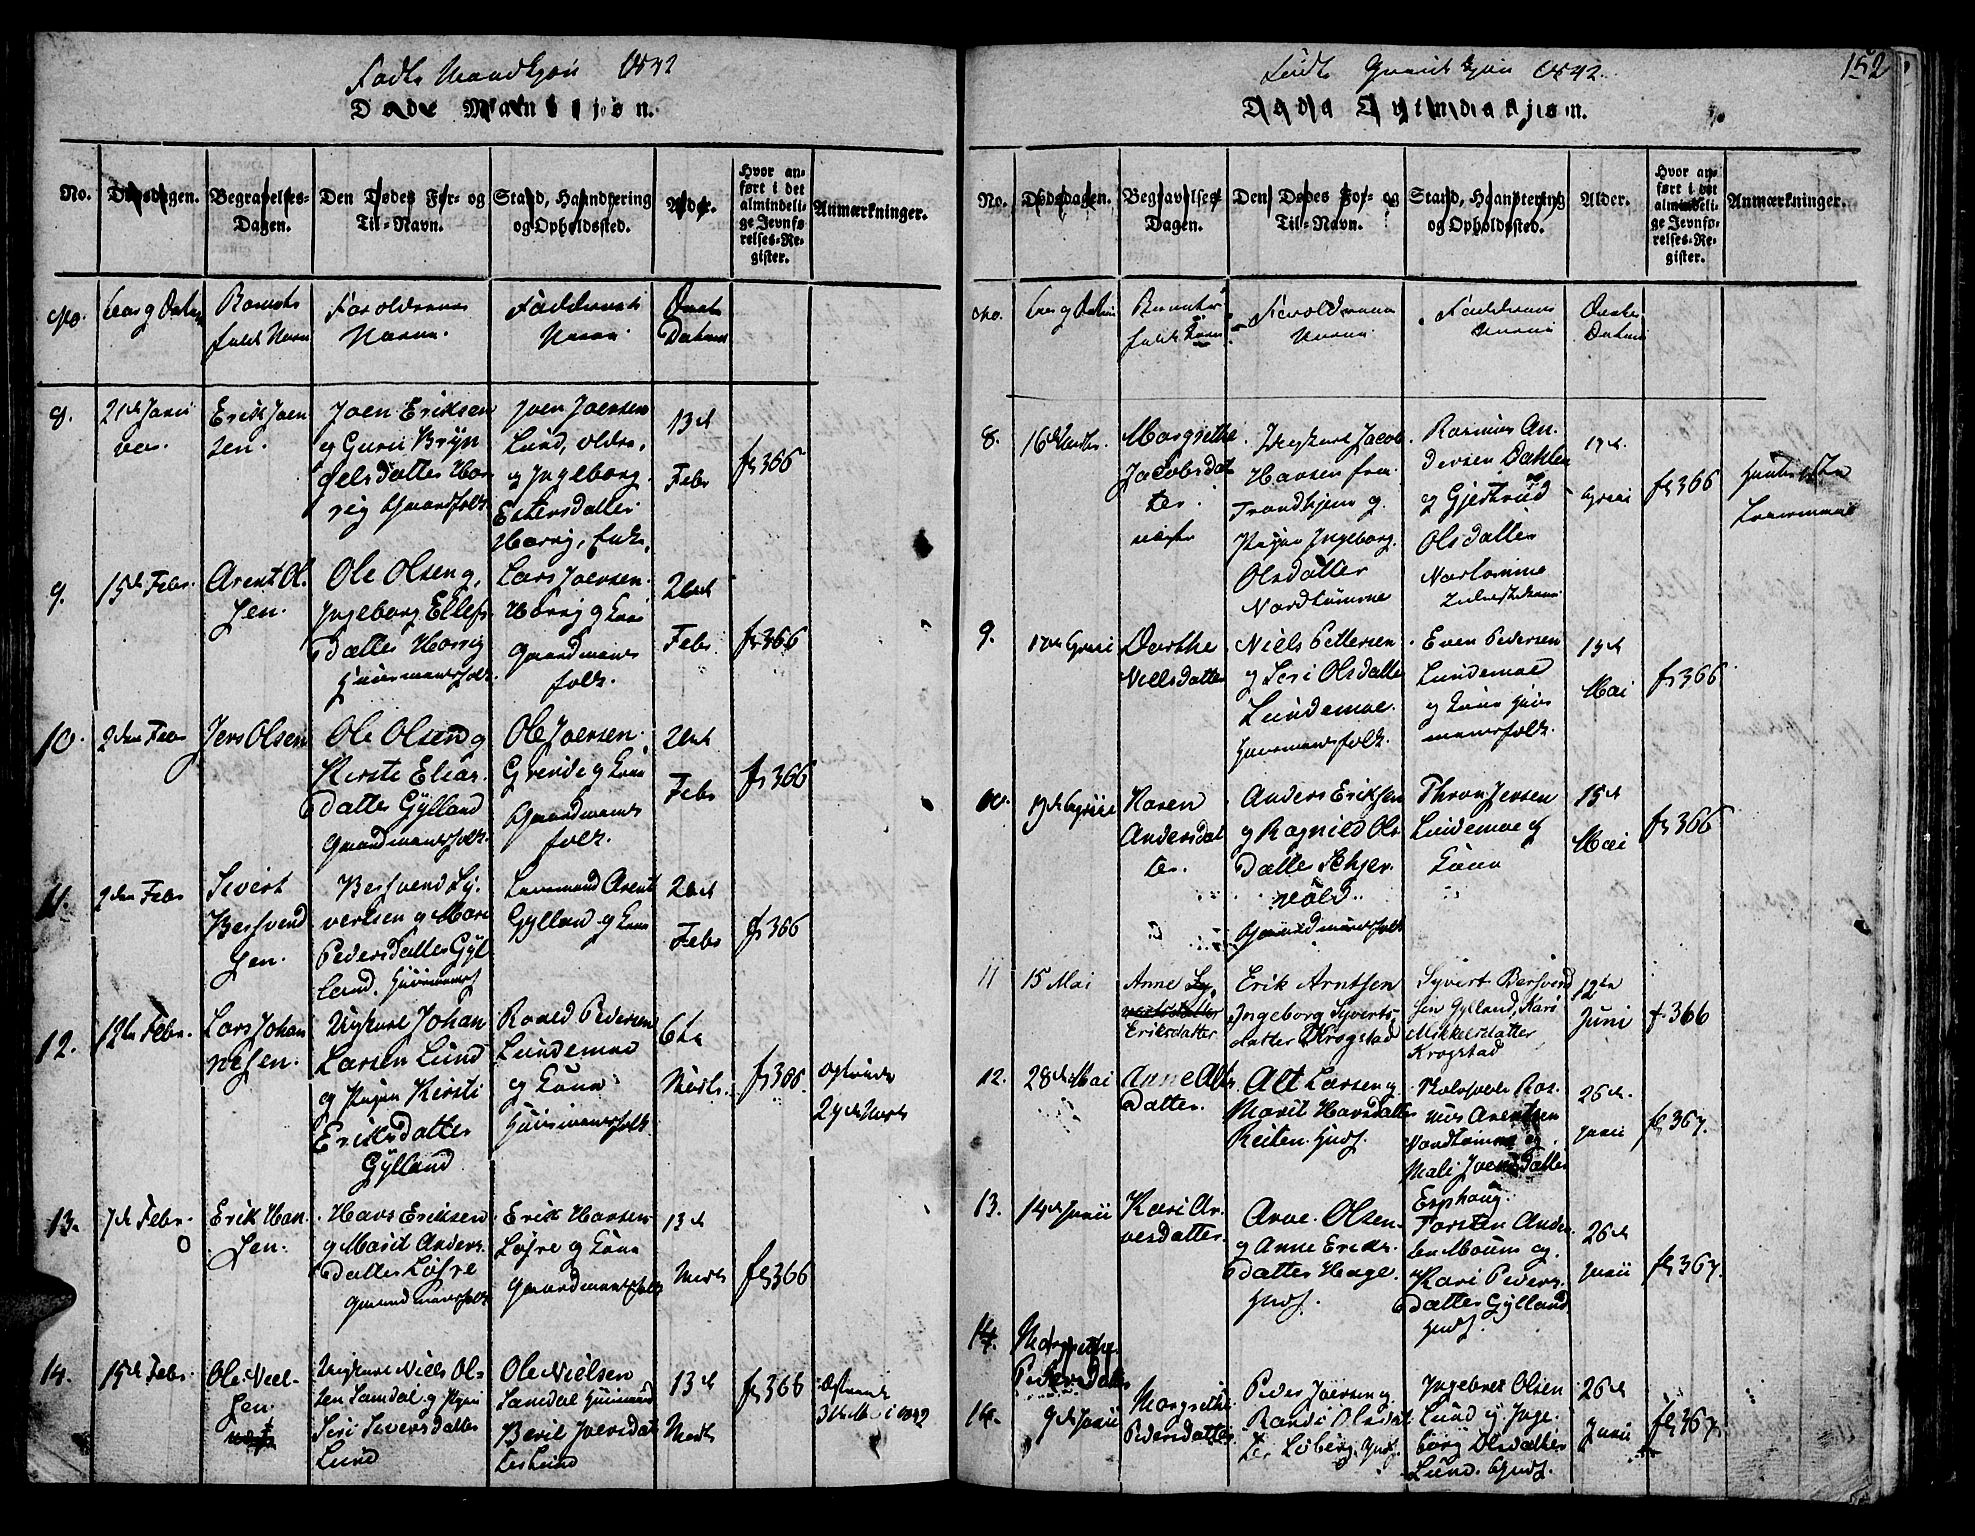 Fødte Mandkjøn 1842
Døde Mandkjøn.
No.
Dødsdagen.
Begravelses-
Dagen.
Den Dødes For- og
Til-Navn.
Stand, Haandtering
og Opholdssted.
Alder.
Hvor an-
ført i det
almindeli-
ge Jevnfø-
relses-Re-
gister.
Anmærkninger.
No.
Aar og Datum
Barnets
fulde Navn
Forældrenes
Navne
Faddernes
Navne
Daabs
Datum
8.
21de Janu
Erik Joen
sen.
Joen Eriksen
og Guru Bryn
gelsdatter Hor
rig Gaardfolk
Joen Joensen
Lund,
og Ingeborg
Estensdatter
Horrig,
13de
Febr
fl 366
9.
15de Febr.
Arent Ol
sen.
Ole Olsen og
Ingeborg Ellefs
datter Horrig
Huusmandsfolk
Lars Joensen
Horrig og Kone
Gaardmands
folk.
20de
Febr
fl 366
10.
2den Febr
Jens Olsen
Ole Olsen og
Kirsti Elias
datter Gylland
Gaardmandsfolk
Ole Joensen
Grinde og Kone
Gaardmands
folk.
20de
Febr
fl 366
11.
2den Febr
Sivert
Bersvend
sen.
Bersvend Sy
vertsen og Mari
Pedersdatter Gyl
land. Huusmandsf
Leensmand Arent
Gylland og Kone
20de
Febr
fl 366
12.
12te Febr.
Lars Johan
nesen.
Ungkarl Johan
Larsen Lund
og Pigen Kirsti
Eriksdatter
Gylland
Roald Pedersen
Lundemoe
og Kone
Huusmandsfolk
6te
Marts.
fl 366.
13.
7de Febr.
Erik Han
sen.
Hans Eriksen
og Marit Anders
datter Løhre
Gaardmandsfolk
Erik Hansen
Løhre og Kone
Gaardmandsfolk
13de
Marts
fl 366
14.
15de Febr.
Ole Niel-
sen.
Ungkarl Niels Ol-
sen Samdal og Pigen
Siri Siversdatter
Lund
Ole Nielsen
Samdal Huusmand
Beril Joensdat
ter Lund
13de
Marts
fl 366
152
Fødte Qvindekjøn 1842.
Døde Qvindekjøn.
No.
Dødsdagen.
Begravelses-
Dagen.
Den Dødes For- og
Til-Navn.
Stand, Haandtering
og Opholdssted.
Alder.
Hvor an-
ført i det
almindeli-
ge Jevnfø-
relses-Re-
gister.
Anmærkninger.
No.
Aar og Datum
Barnets
fulde Navn
Forældrenes
Navne
Faddernes
Navne
Daabs
Datum
8.
16de Marts
Margrethe
Jacobsdat
ter.
uægte
Ungkarl Jacob
Hansen fra
Trondhjem og
Pigen Ingeborg
Olsdatter
Nordtømme
Rasmus An
dersen Dahlen
og Gjertrud
Olsdatter
Nortømme
17de
April
fl 366
9.
17de April
Dorthe
Nielsdatter
Niels Pettersen
og Siri Olsdatter
Lundemoe.
Huusmandsfolk.
Even Pedersen
Lundemoe
og Kone Huus
mandsfolk.
15de
Mai
fl 366
10.
17de April
Karen
Andersdat
ter.
Anders Eriksen
og Ragnild Ols
datter Schjer
vold.
Gaardmandsfolk
Thron Jensen
Lundemoe og
Kone
15de
Mai
fl 366
11
15 Mai
Anne Sy
vertsdatter
Eriksdatter
Erik Arntsen
Ingeborg Syverts-
datter Krogstad
Syvert Bersvend
sen Gylland, Kari
Mikkelsdatter
Krogstad
12te
Juni
f 366
12.
28de Mai
Anne Alts
datter.
Alt Larsen og
Marit Hansdatter
Reiten. Husf.
Ras
mus Arentsen
Nordtømme og
Mali Joensdatter
Esphaug.
26de
Junii
fl 367.
13.
14de Junii
Kari Ar
nesdatter.
Arne Olsen
og Anne Eriks
datter Hage.
Husf.
Torsten Ander
sen Moum og
Kari Peders
datter Gylland
Husf.
26de
Junii
fl 367.
14.
Margrethe
Pedersdatter
14.
9de Junii
Margrethe
Pedersdatter.
Peder Joensen og
Randi Olsdat
ter Løberg. Husf.
Ingebret Olsen
Lund og Inge
borg Olsdatter
Lund. Husf.
26de
Junii
fl 367.